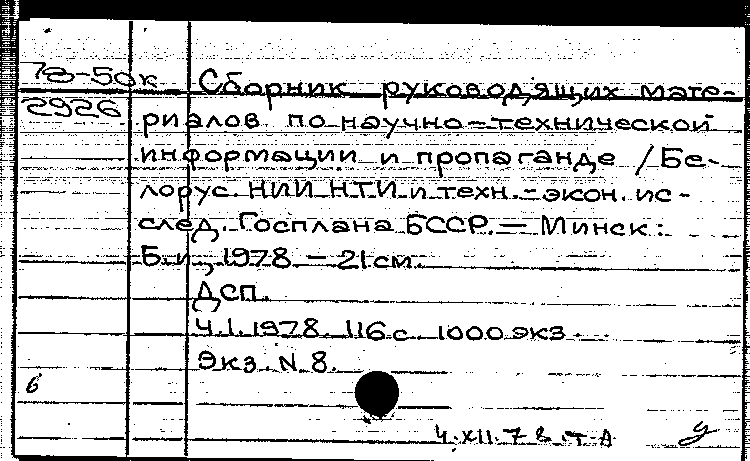 78-50к Сборник руководящих мате-
2926 риалов по научно-технической
информации и пропаганде /Бе-
лорус. НИИ НТИ и техн.-экон. ис-
след. Госплана БССР. — Минск:
Б.и., 1978. — 21 см.
ДСП.
Ч.1. 1978. 116 с. 1000 экз.
Экз. N 8.
б
4.XII.78. Т-А У